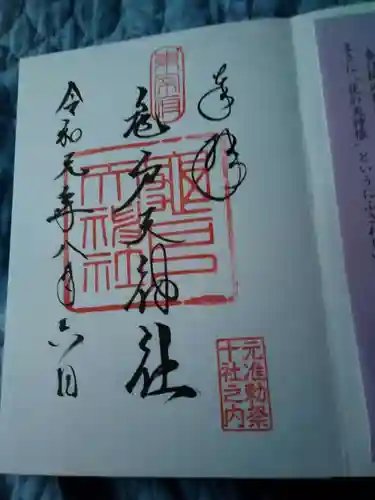 奉拝
東宰府
亀戸天神社
亀戸天神社
令和元年八月六日
元准勅祭
十社之内